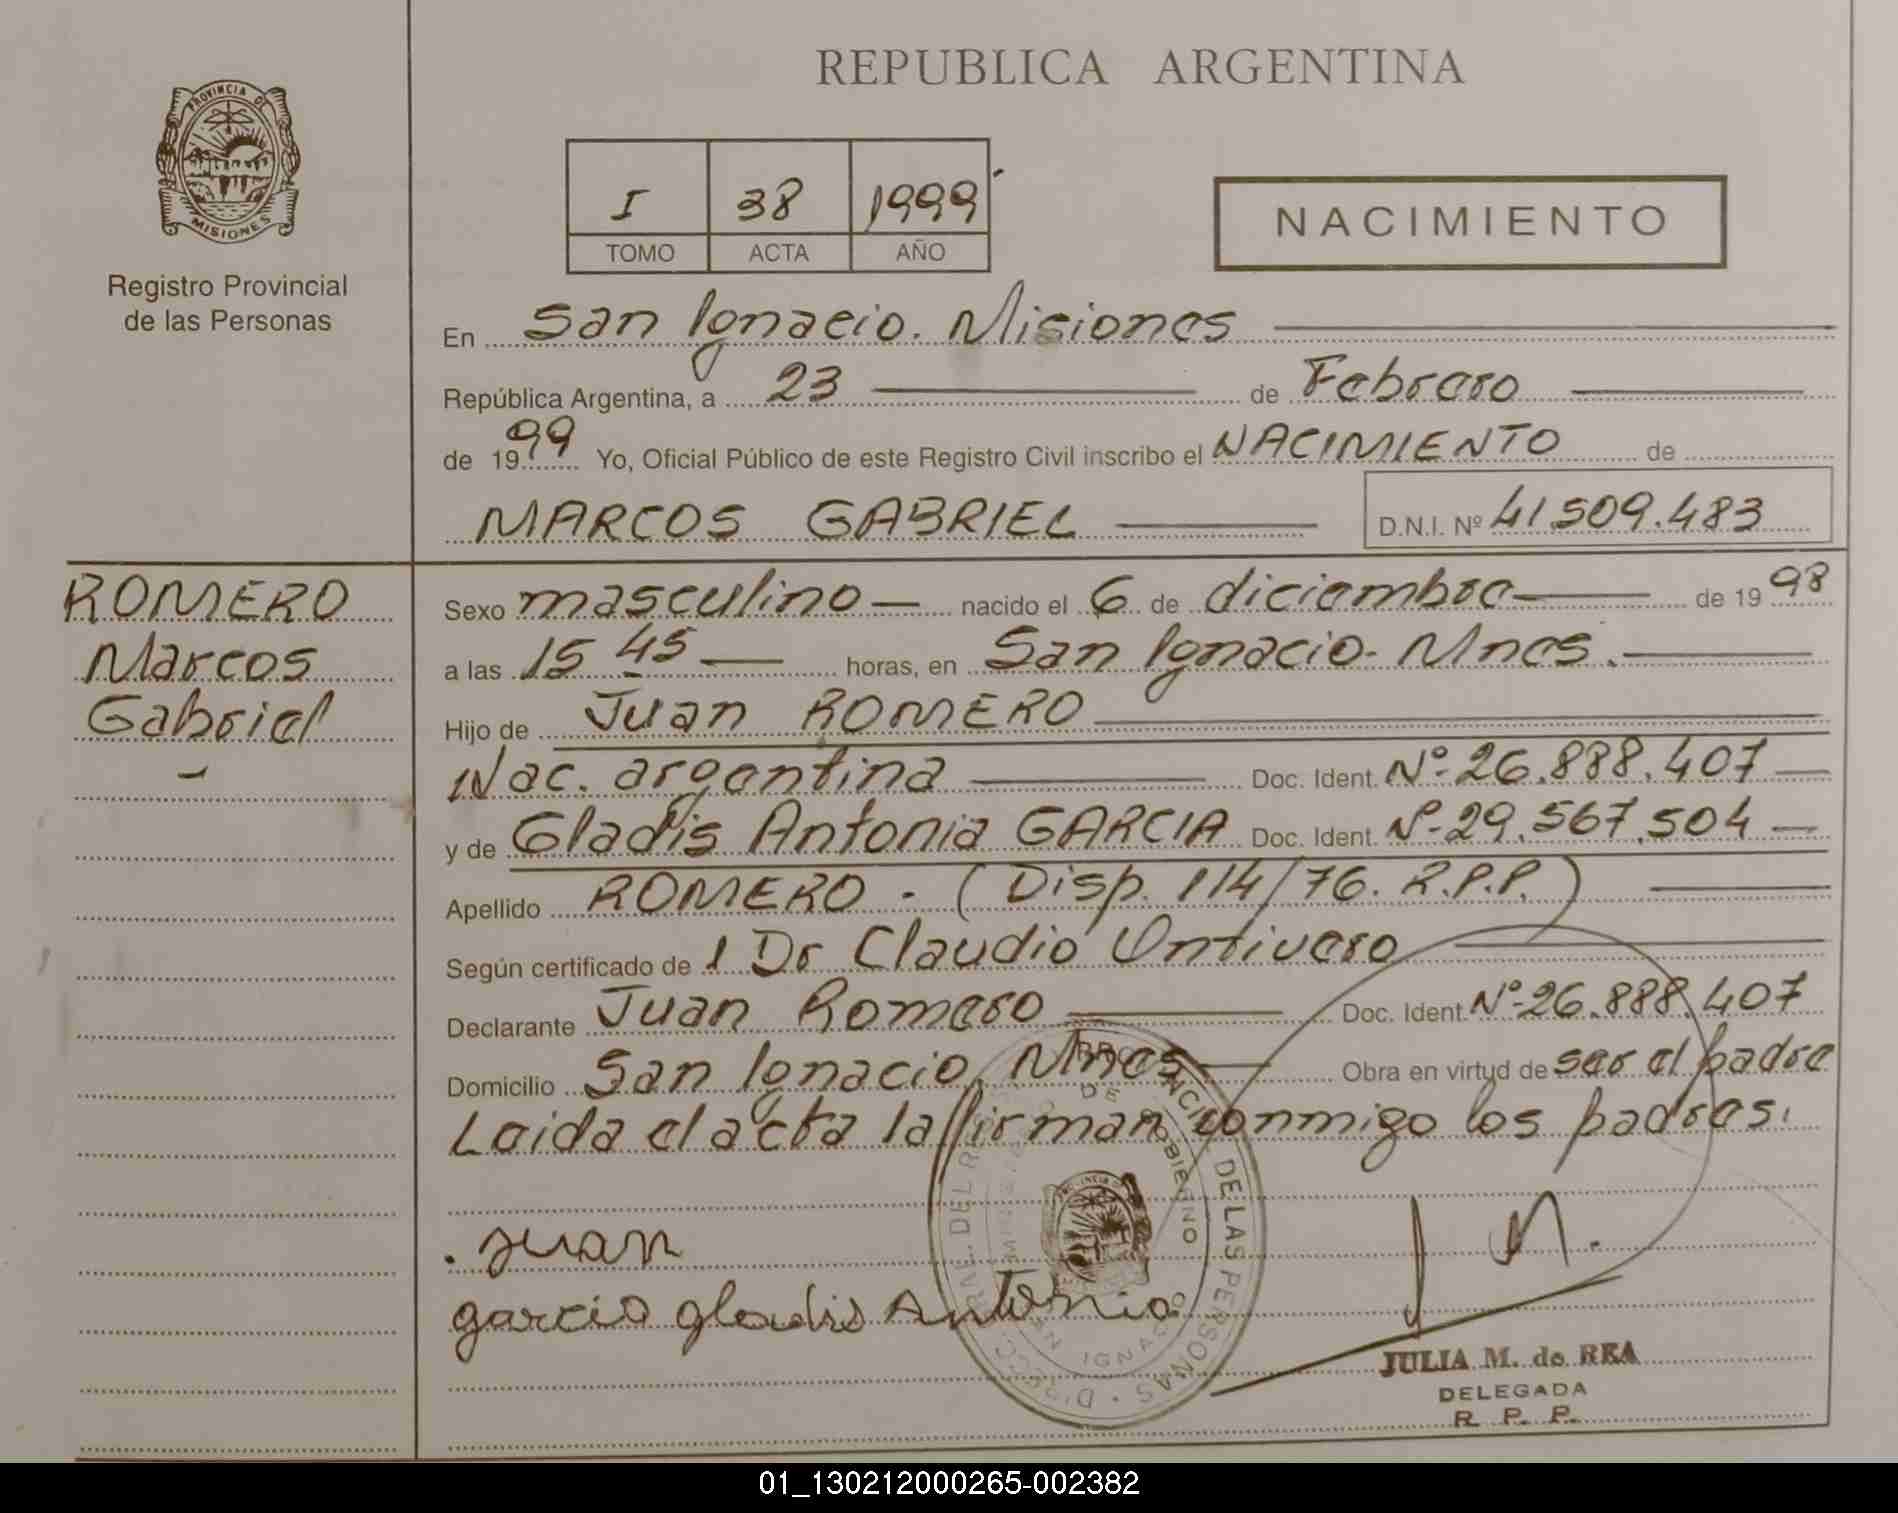 REPUBLICA ARGENTINA
PROVINCIA DE
MISIONES
Registro Provincial
de las Personas
I 38 1999
TOMO ACTA AÑO
NACIMIENTO
En San Ignacio. Misiones
República Argentina, a 23 de Febrero
de 1999 Yo, Oficial Público de este Registro Civil inscribo el NACIMIENTO de
MARCOS GABRIEL D.N.I. Nº 41.509.483
ROMERO
Marcos
Gabriel
Sexo masculino nacido el 6 de diciembre de 1998
a las 15 45 horas, en San Ignacio. Mnes.
Hijo de Juan ROMERO
Nac. argentina Doc. Ident. Nº 26.888.407
y de Gladis Antonia GARCIA Doc. Ident. Nº 29.567.504
Apellido ROMERO. (Disp. 114/76. R.P.P.)
Según certificado de 1 Dr Claudio Ontivero
Declarante Juan Romero Doc. Ident. Nº 26.888.407
Domicilio San Ignacio, Mnes Obra en virtud de ser el padre
Leida el acta la firman conmigo los padres.
Juan
garcia gladis Antonia
DE LAS PERSONAS
SAN IGNACIO
JULIA M. de REA
DELEGADA
R. P. P.
01_130212000265-002382